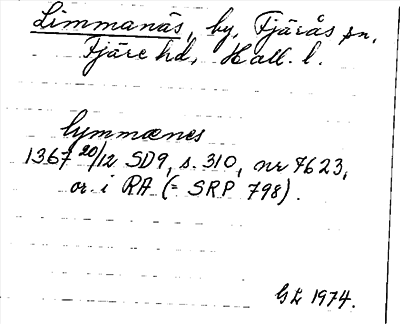 Limmanäs, by, Fjärås sn,
Fjäre hd, Hall. l.
lymmænes
1367 20/12 SD9, s. 310, nr 7623,
or. i RA (= SRP 798).
GL 1974.